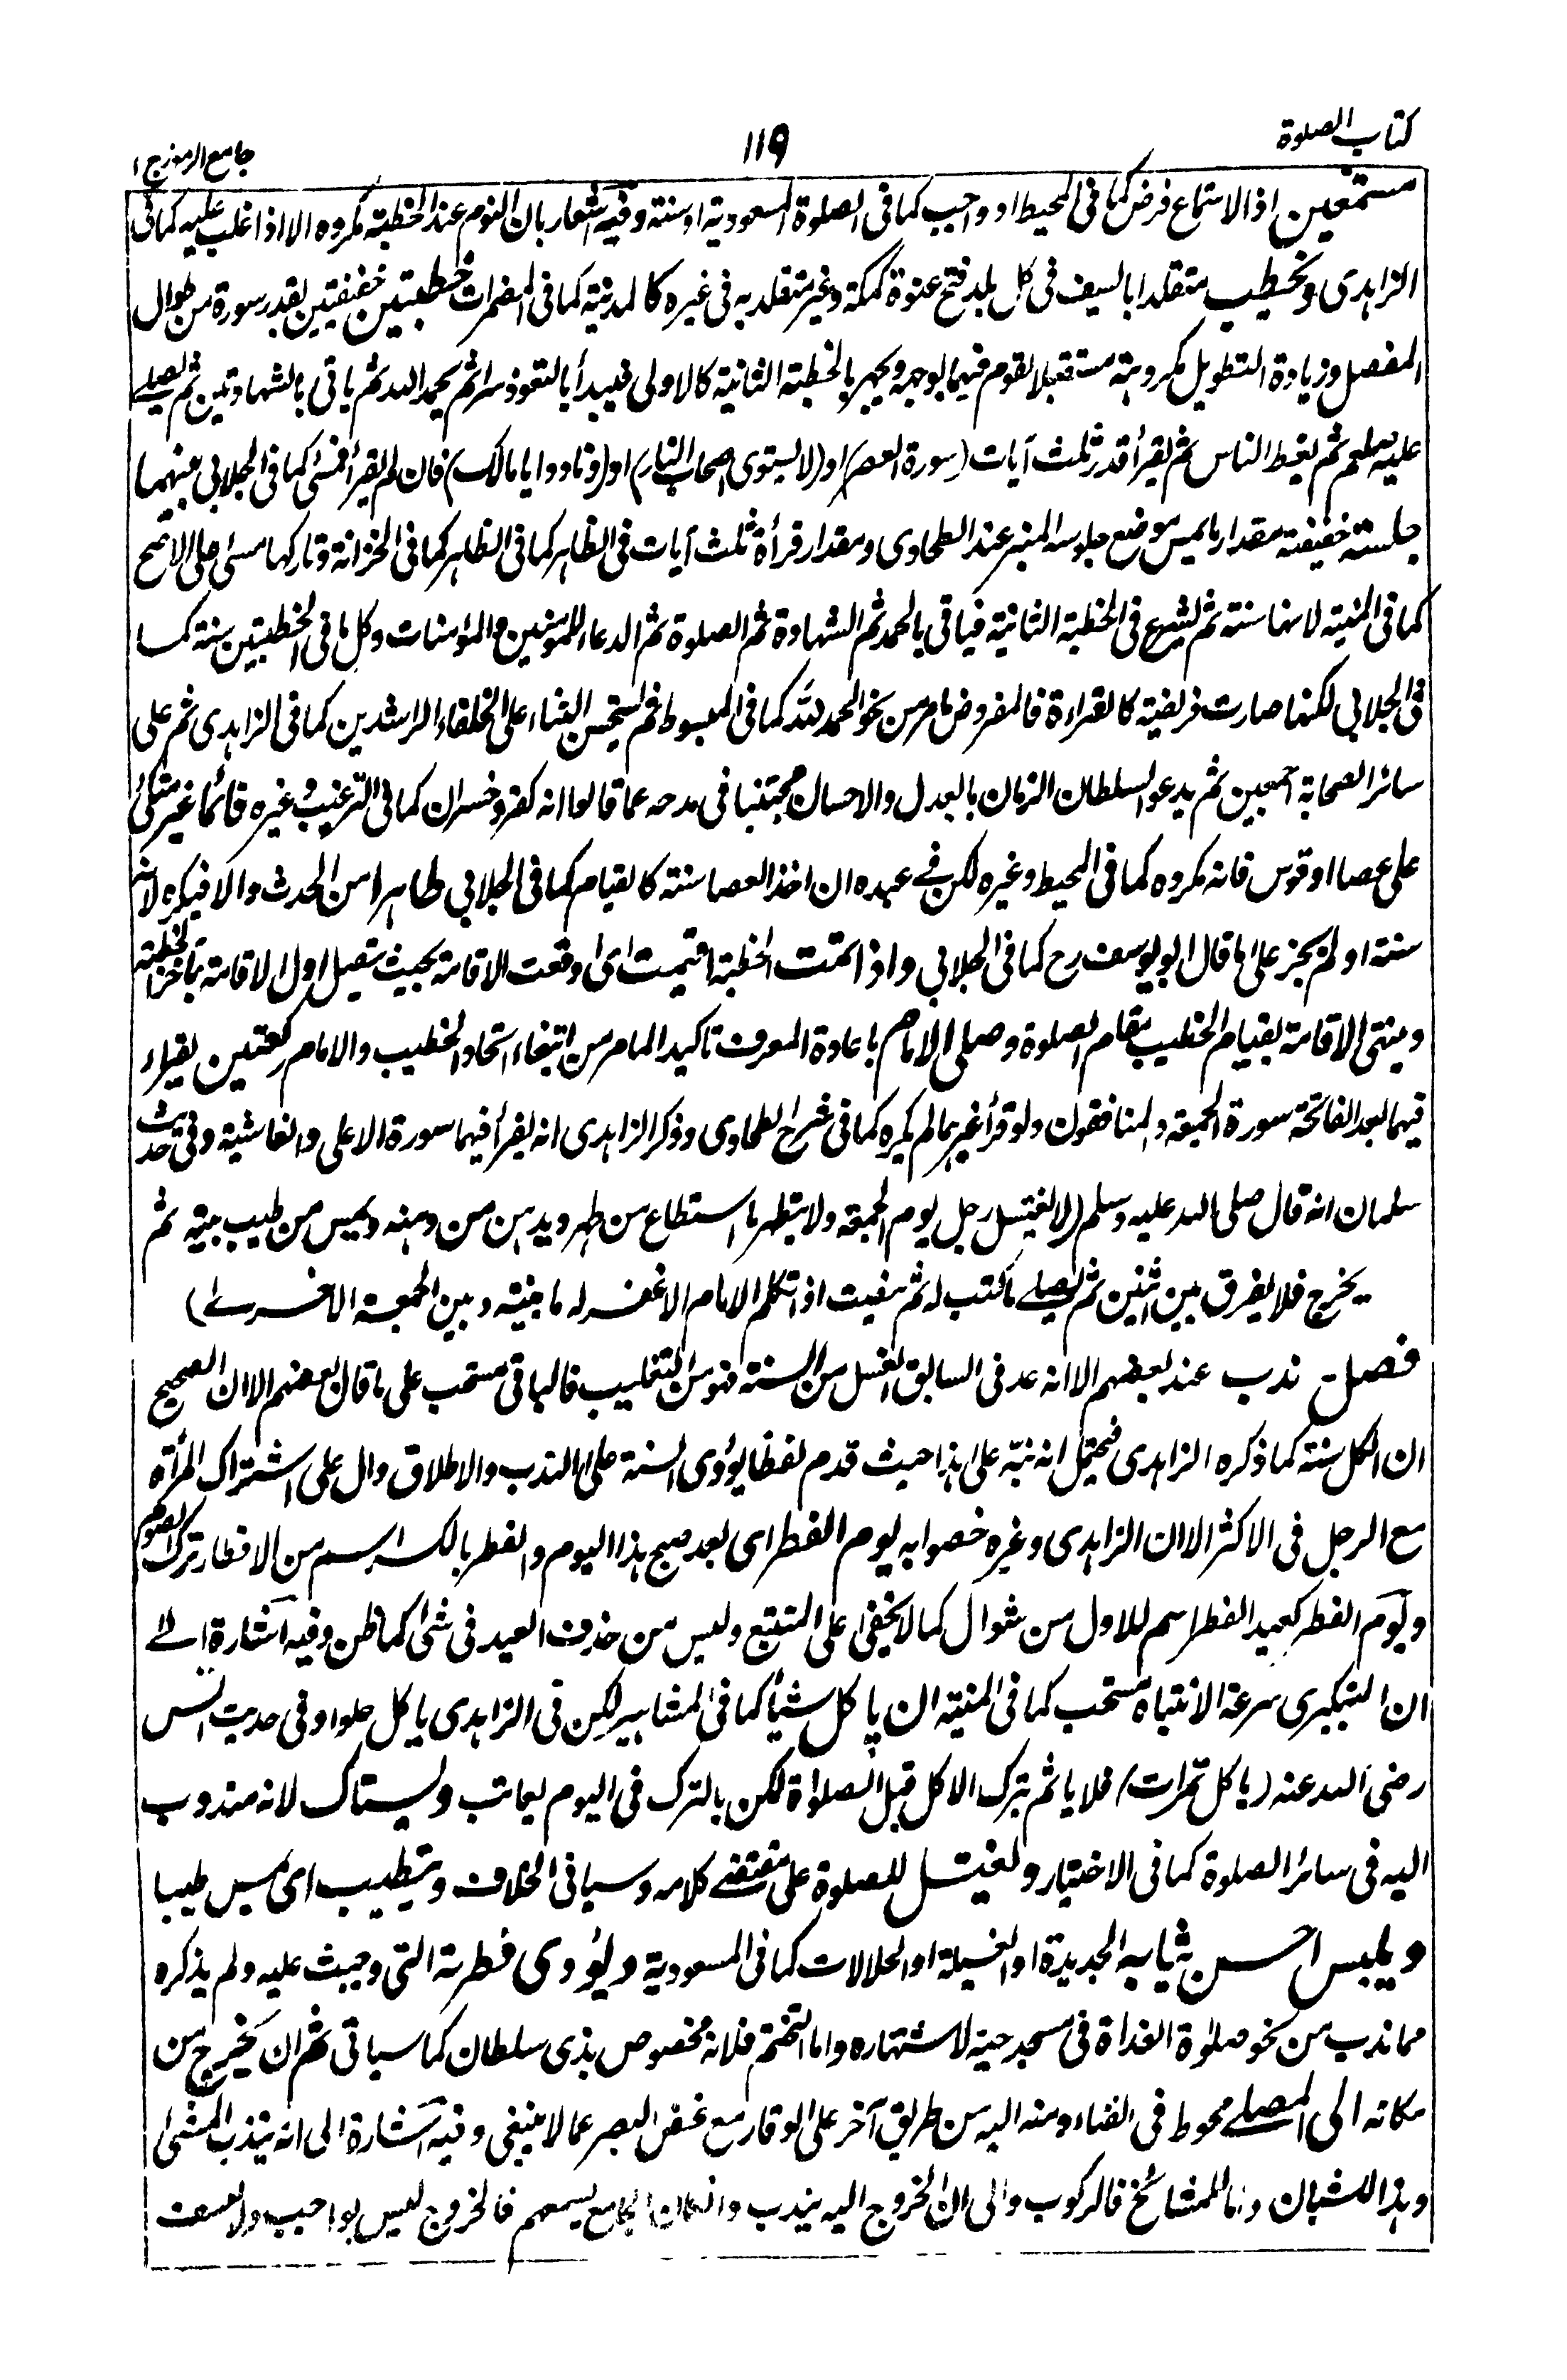 كتاب الصلوة
١١٩
جامع الرموز ج ١
مستمعين اذ الاستماع فرض كما فى المحيط او واجب كما فى الصلوة المسعودية او سنة وفيه اشعار بان النوم عند الخطبة مكروه الا اذا غلب عليه كما فى
الزاهدى ويخطب متقلدا بالسيف فى كل بلد فتح عنوة كمكة وغير متقلد به فى غيره كالمدينة كما فى المضمرات خطبتين خفيفتين بقدر سورة من طوال
المفصل وزيادة التطويل مكروهة مستقبلا لقوم فيهما بوجهه ويجهر بالخطبة الثانية كالاولى فيبدأ بالتعوذ سرا ثم يحمد الله ثم ياتى بالشهادتين ثم يصلے
عليه صلعم ثم يعظ الناس ثم يقرأ قدر ثلث آيات (سورة العصر) او (لا يستوى اصحاب النار) او (ونادوا يا مالك) فان لم يقرأ فمسئ كما فى الجلابى بينهما
جلسته خفيفته مقدار ما يمس موضع جلوسه المنبر عند الطحاوى ومقدار قرأة ثلث آيات فى الظاهر كما فى الظاهر كما فى الخزانة وتاركها مسئ على الاصح
كما فى المنية لانها سنة ثم يشرع فى الخطبة الثانية فياتى بالحمد ثم الشهادة ثم الصلوة ثم الدعاء للمؤمنين و المؤمنات وكل ما فى الخطبتين سنة كما
فى الجلابى لكنها صارت فريضة كالقراءة فالمفروض ما مر من نحو الحمد لله كما فى المبسوط ثم يستحسن الثناء على الخلفاء الراشدين كما فى الزاهدى ثم على
سائر الصحابة اجمعين ثم يدعو لسلطان الزمان بالعدل والاحسان مجتنبا فى مدحه عما قالوا انه كفر وخسران كما فى الترغيب وغيره قائما غير متكئ
على عصا او قوس فانه مكروه كما فى المحيط وغيره لكن فے عهده ان اخذ العصا سنة كالقيام كما فى الجلابى طاهرا من الحدث والا فيكره لانه
سنة او لم يجز على ما قال ابو يوسف رح كما فى الجلابى واذا تمت الخطبة اقيمت اى اوقعت الاقامة بحيث يتصل اول الاقامة بآخر الخطبة
وينتهى الاقامة بقيام الخطيب مقام الصلوة وصلى الامام باعادة المعرف تاكيدا لما مر من ابتغاء اتحاد الخطيب والامام ركعتين يقراء
فيهما بعد الفاتحة سورة الجمعة والمنافقون ولو قرأ غيرهما لم يكره كما فى شرح الطحاوى وذكر الزاهدى انه يقرأ فيهما سورة الاعلى والغاشية وفى حديث
سلمان انه قال صلى الله عليه وسلم (لا يغتسل رجل يوم الجمعة ولا يتطهر ما استطاع من طهر ويدهن من دهنه ويمس من طيب بيته ثم
يخرج فلا يفرق بين اثنين ثم يصلے ما كتب له ثم ينصت اذا تكلم الامام الا غفر له ما بينه وبين الجمعة الاخرے)
فصل - ندب عند بعضهم الا انه عد فى السابق الغسل من السنة فهو من التغليب فالباقى مستحب على ما قال بعضهم الا ان الصحيح
ان الكل سنة كما ذكره الزاهدى فيحتمل انه نبّه على هذا حيث قدم لفظا يؤدى السنة على الندب والاطلاق دال على اشتراك المرأة
مع الرجل فى الاكثر الا ان الزاهدى وغيره خصوا به يوم الفطر اى بعد صبح هذا اليوم والفطر بالكسر اسم من الافطار ترك الصوم
ويوم الفطر كعيد الفطر اسم للاول من شوال كما لا يخفى على المتتبع وليس من حذف العيد فى شئ كما ظن وفيه اشارة الے
ان التبكير اى سرعة الانتباه مستحب كما فى المنية ان ياكل شيأ كما فى المشاهير لكن فى الزاهدى ياكل حلوا وفى حديث انس
رضى الله عنه (ياكل تمرات) فلا ياثم بترك الاكل قبل الصلواة لكن بالترك فى اليوم يعاتب ويستاك لانه مندوب
اليه فى سائر الصلوة كما فى الاختيار ويغتسل للصلوة على مقتضے كلامه وسياتى الخلاف ويتطيب اى يمس طيبا
ويلبس احسن ثيابه الجديدة او الغسيلة او الحلالات كما فى المسعودية ويؤدى فطرته التى وجبت عليه ولم يذكره
مما ندب من نحو صلوٰة الغداة فى مسجد حيه لاشتهاره واما التختم فلانه مخصوص بذى سلطان كما سياتى ثم ان يخرج من
مكانه الى المصلے محوط فى الفناء ومنه اليه من طريق آخر على الوقار مع غض البصر عما لا ينبغى وفيه اشارة الى انه يندب المشى
وهذا للشبان واما للمشائخ فالركوب والى ان الخروج اليه يندب وان كان الجامع يسعهم فالخروج ليس بواجب